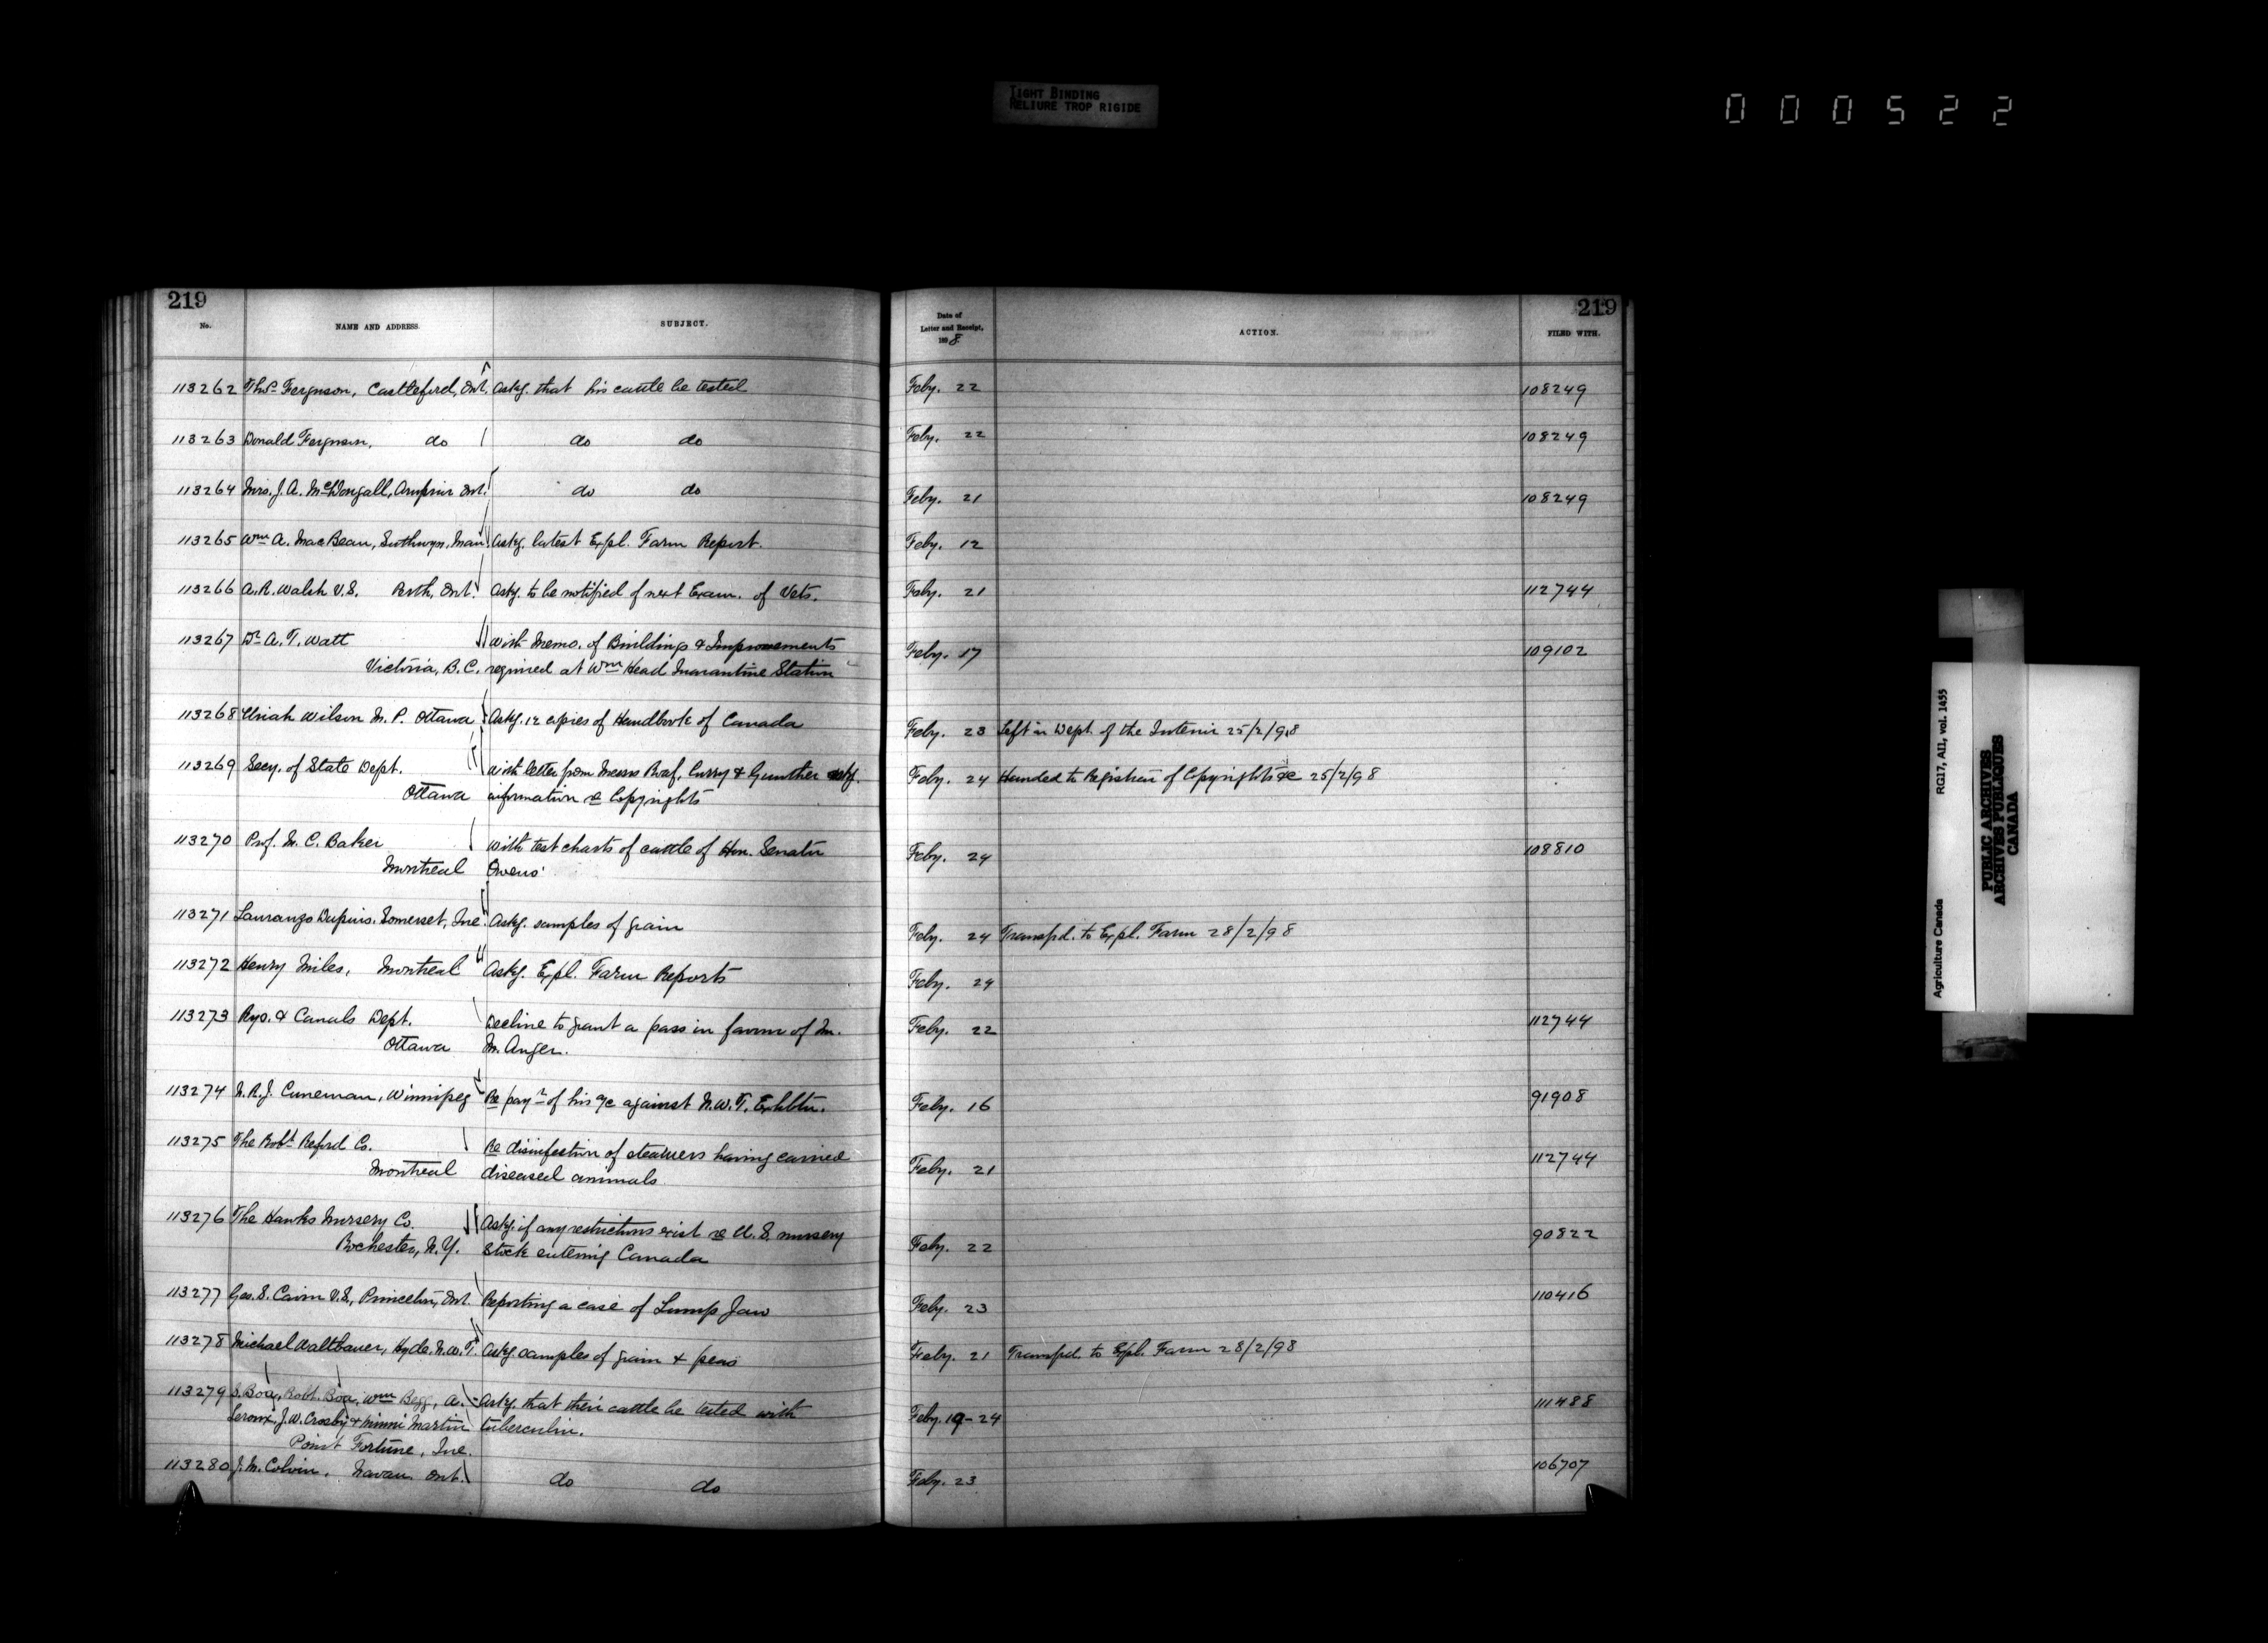 TIGHT BINDING
RELIURE TROP RIGIDE
000522
219
No. NAME AND ADDRESS. SUBJECT.
113262 Thos. Ferguson, Castleford, Ont. Askg. that his cattle be tested
113263 Donald Ferguson, do do do
113264 Mrs. J. A. McDougall, Arnprior Ont. do do
113265 Wm A. MacBean, Man. Askg. latest Expl. Farm Report.
113266 A. R. Walsh V.S. Perth, Ont. Askg. to be notified of next Exam. of Vets.
113267 Dr. A. T. Watt With Memo. of Buildings & Improvements
Victoria, B.C. required at Wm Head Quarantine Station
113268 Uriah Wilson M.P. Ottawa Askg. 12 copies of Handbook of Canada
113269 Secy. of State Dept. With letter from Messrs Curry & Gunther askg.
Ottawa information re Copyrights
113270 Prof. M. C. Baker With test charts of cattle of Hon. Senator
Montreal Owens'
113271 Dupuis. Somerset, Que. Askg. samples of grain
113272 Henry Miles, Montreal Askg. Expl. Farm Reports
113273 Rys. & Canals Dept. Decline to grant a pass in favour of M.
Ottawa M. Anger.
113274 Winnipeg Re payt. of his a/c against N.W.T. Exhbtn.
113275 The Robt. Reford Co. Re disinfection of steamers having carried
Montreal diseased animals
113276 The Hawks Nursery Co. Askg. if any restrictions exist re U.S. nursery
Rochester, N.Y. Stock entering Canada
113277 Geo. S. Cairn V.S., Princeton, Ont. Reporting a case of Lump Jaw
113278 Michael Waltbauer, Hyde, N.W.T. Askg. samples of grain & peas
113279 S. Boa, Robt. Boa, Wm Begg, A. Askg. that their cattle be tested with
Leroux, J. W. Crosby & Martin tuberculin.
Point Fortune, Que.
113280 J. M. Colvin, Navan Ont. do do
219
Date of
Letter and Receipt,
1898 ACTION. FILED WITH.
Feby. 22 108249
Feby. 22 108249
Feby. 21 108249
Feby. 12
Feby. 21 112744
Feby. 17 109102
Feby. 23 Left in Dept. of the Interior 25/2/98
Feby. 24 Handed to Registrar of Copyrights &c 25/2/98
Feby. 24 108810
Feby. 24 Transfd. to Expl. Farm 28/2/98
Feby. 24
Feby. 22 112744
Feby. 16 91908
Feby. 21 112744
Feby. 22 90822
Feby. 23 110416
Feby. 21 Transfd. to Expl. Farm 28/2/98
Feby. 19-24 111488
Feby. 23 106707
Agriculture Canada RG17, AII, vol. 1455
PUBLIC ARCHIVES
ARCHIVES PUBLIQUES
CANADA